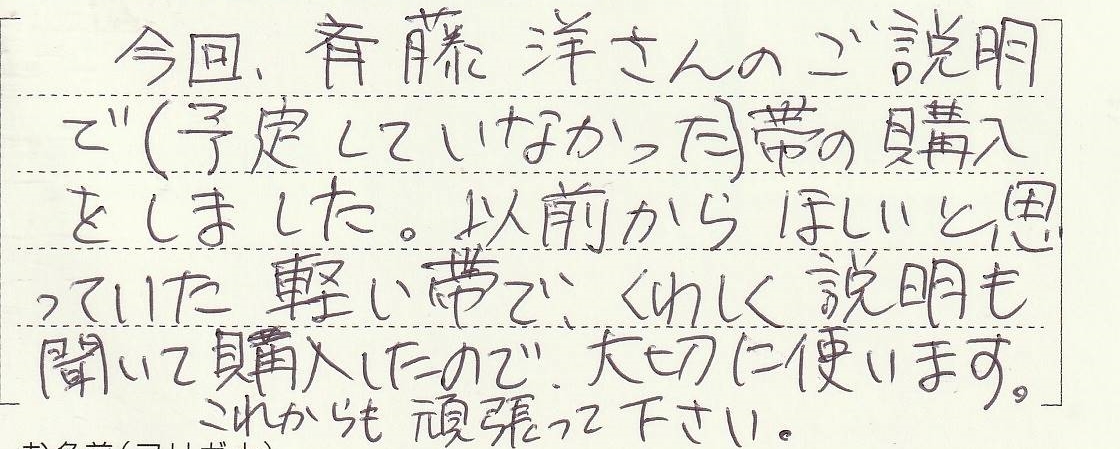 今回、斉藤洋さんのご説明
で(予定していなかった)帯の購入
をしました。以前からほしいと思
っていた軽い帯で、くわしく説明も
聞いて購入したので、大切に使います。
これからも頑張って下さい。